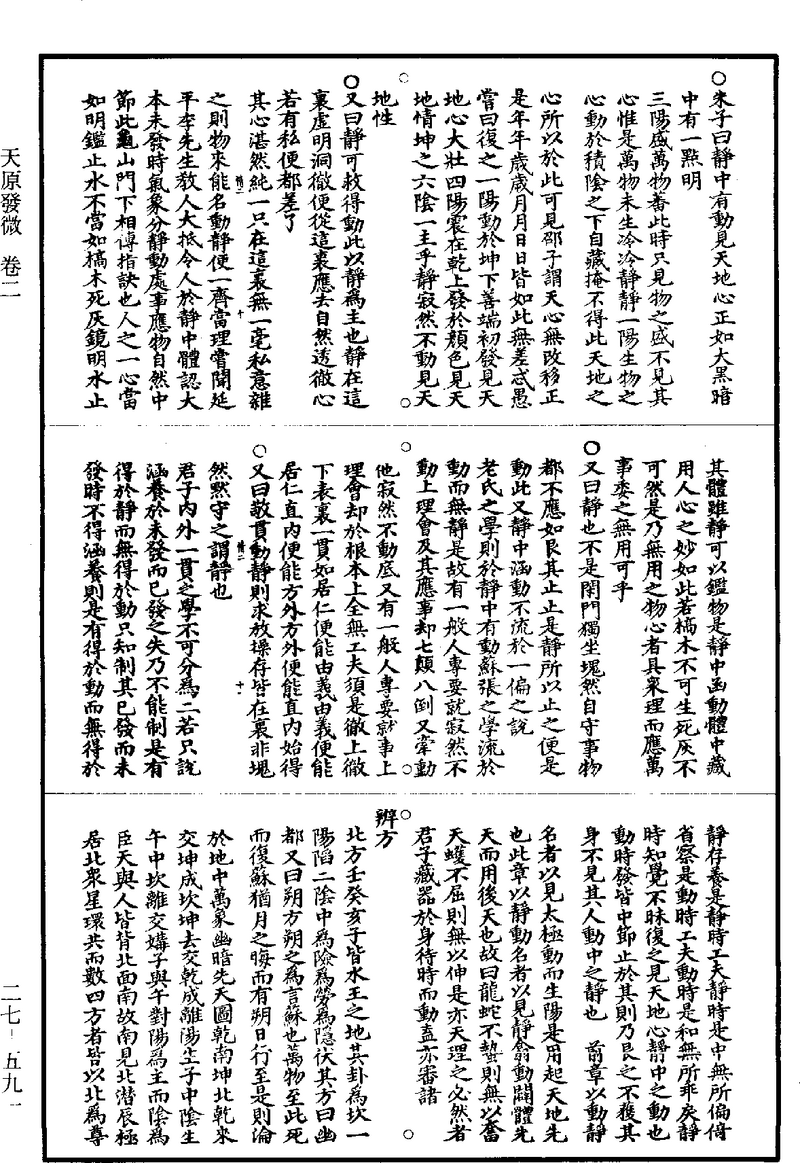 ○朱子曰靜中有動見天地心正如大黑暗
中有一點明
三陽盛萬物蕃此時只見物之盛不見其
心惟是萬物未生冷冷靜靜一陽生物之
心動於積陰之下自藏掩不得此天地之
心所以於此可見邵子謂天心無改移正
是年年歲歲月月日日皆如此無差忒愚
嘗曰復之一陽動於坤下善端初發見天
地心大壯四陽震在乾上發於顏色見天
地情坤之六陰一主乎靜寂然不動見天
地性
○又曰靜可救得動此以靜為主也靜在這
裏虛明洞徹便從這裏應去自然透徹心
若有私便都差了
其心湛然純一只在這裏無一毫私意雜
之則物來能名動靜便一齊當理嘗聞延
平李先生教人大抵令人於靜中體認大
本未發時氣象分靜動處事應物自然中
節此龜山門下相傳指訣也人之一心當
如明鑑止水不當如槁木死灰鏡明水止
其體雖靜可以鑑物是靜中函動體中藏
用人心之妙如此若槁木不可生死灰不
可然是乃無用之物心者具衆理而應萬
事委之無用可乎
○又曰靜也不是閉門獨坐塊然自守事物
都不應如艮其止止是靜所以止之便是
動此又靜中涵動不流於一偏之說
老氏之學則於靜中有動蘇張之學流於
動而無靜是故有一般人專要就寂然不
動上理會及其應事却七顛八倒又牽動
他寂然不動底又有一般人專要就事上
理會却於根本上全無工夫須是徹上徹
下表裏一貫如居仁便能由義由義便能
居仁直內便能方外方外便能直內始得
○又曰敬貫動靜則求放操存皆在裏非塊
然默守之謂靜也
君子內外一貫之學不可分為二若只說
涵養於未發而已發之失乃不能制是有
得於靜而無得於動只知制其已發而未
發時不得涵養則是有得於動而無得於
靜存養是靜時工夫靜時是中無所偏倚
省察是動時工夫動時是和無所乖戾靜
時知覺不昧復之見天地心靜中之動也
動時發皆中節止於其則乃艮之不獲其
身不見其人動中之靜也　前章以動靜
名者以見太極動而生陽是用起天地先
也此章以靜動名者以見靜翕動闢體先
天而用後天也故曰龍蛇不蟄則無以奮
天蠖不屈則無以伸是亦天理之必然者
君子藏器於身待時而動蓋亦審諸
辨方
北方壬癸亥子皆水王之地其卦為坎一
陽陷二陰中為險為勞為隱伏其方曰幽
都又曰朔方朔之為言蘇也萬物至此死
而復蘇猶月之晦而有朔日行至是則淪
於地中萬象幽暗先天圖乾南坤北乾來
交坤成坎坤去交乾成離陽生子中陰生
午中坎離交媾子與午對陽為主而陰為
臣天與人皆背北面南故南見北潛辰極
居北衆星環共而數四方者皆以北為尊
天原發微　卷二
二七－五九一